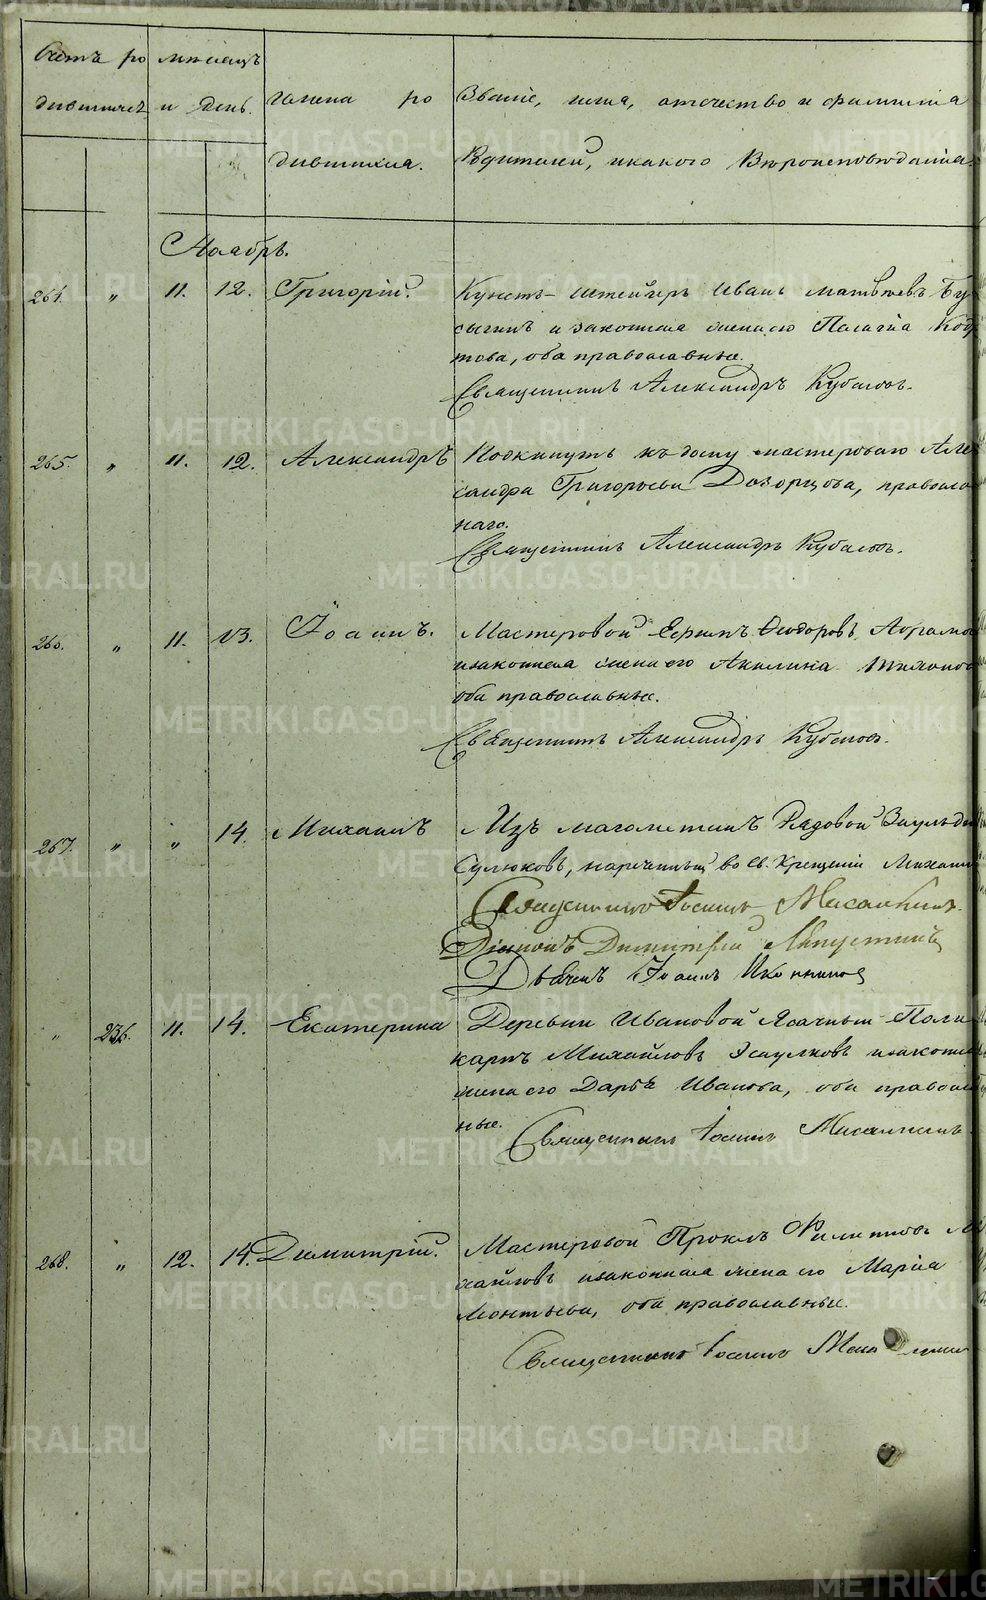 Счетъ ро мѣсяцъ
дившихся и день. Имена ро Званіе, имя, отчество и фамилія
дившихся. Родителей, и какого Вѣроисповѣданія.
Ноябрь.
264. " 11. 12. Григорій. Кунстъ-штейгеръ Иванъ Матвѣевъ Бу
сыгинъ и законная жена его Пелагія
това, оба православные.
Священникъ Александръ Кубасовъ.
265. " 11. 12. Александръ Подкинутъ къ дому мастероваго Але
сандра Григорьева Дозорцова, правосла
наго.
Священникъ Александръ Кубасовъ.
266. " 11. 13. Іоаннъ. Мастеровой Ефимъ Ѳеодоровъ Абрамо
и законная жена его Акилина
оба православные.
Священникъ Александръ Кубасовъ.
267. " " 14. Михаилъ Изъ магометанъ Рядовой
Сулюковъ, нареченный во Св. Крещеніи Михаил
Священникъ Іосифъ
Діаконъ Димитрій
Дьячекъ Іоаннъ Иконников
" 236. 11. 14. Екатерина Деревни Ивановой Ясачный Поли
карпъ Михайловъ Эсаулковъ и законна
жена его Дарья Иванова, оба правосла
ные. Священникъ Іосифъ
268. " 12. 14. Димитрій. Мастеровой Проклъ Филиповъ М
хайловъ и законная жена его Марія
Леонтьева, оба православные.
Священникъ Іосифъ
METRIKI.GASO-URAL.RU